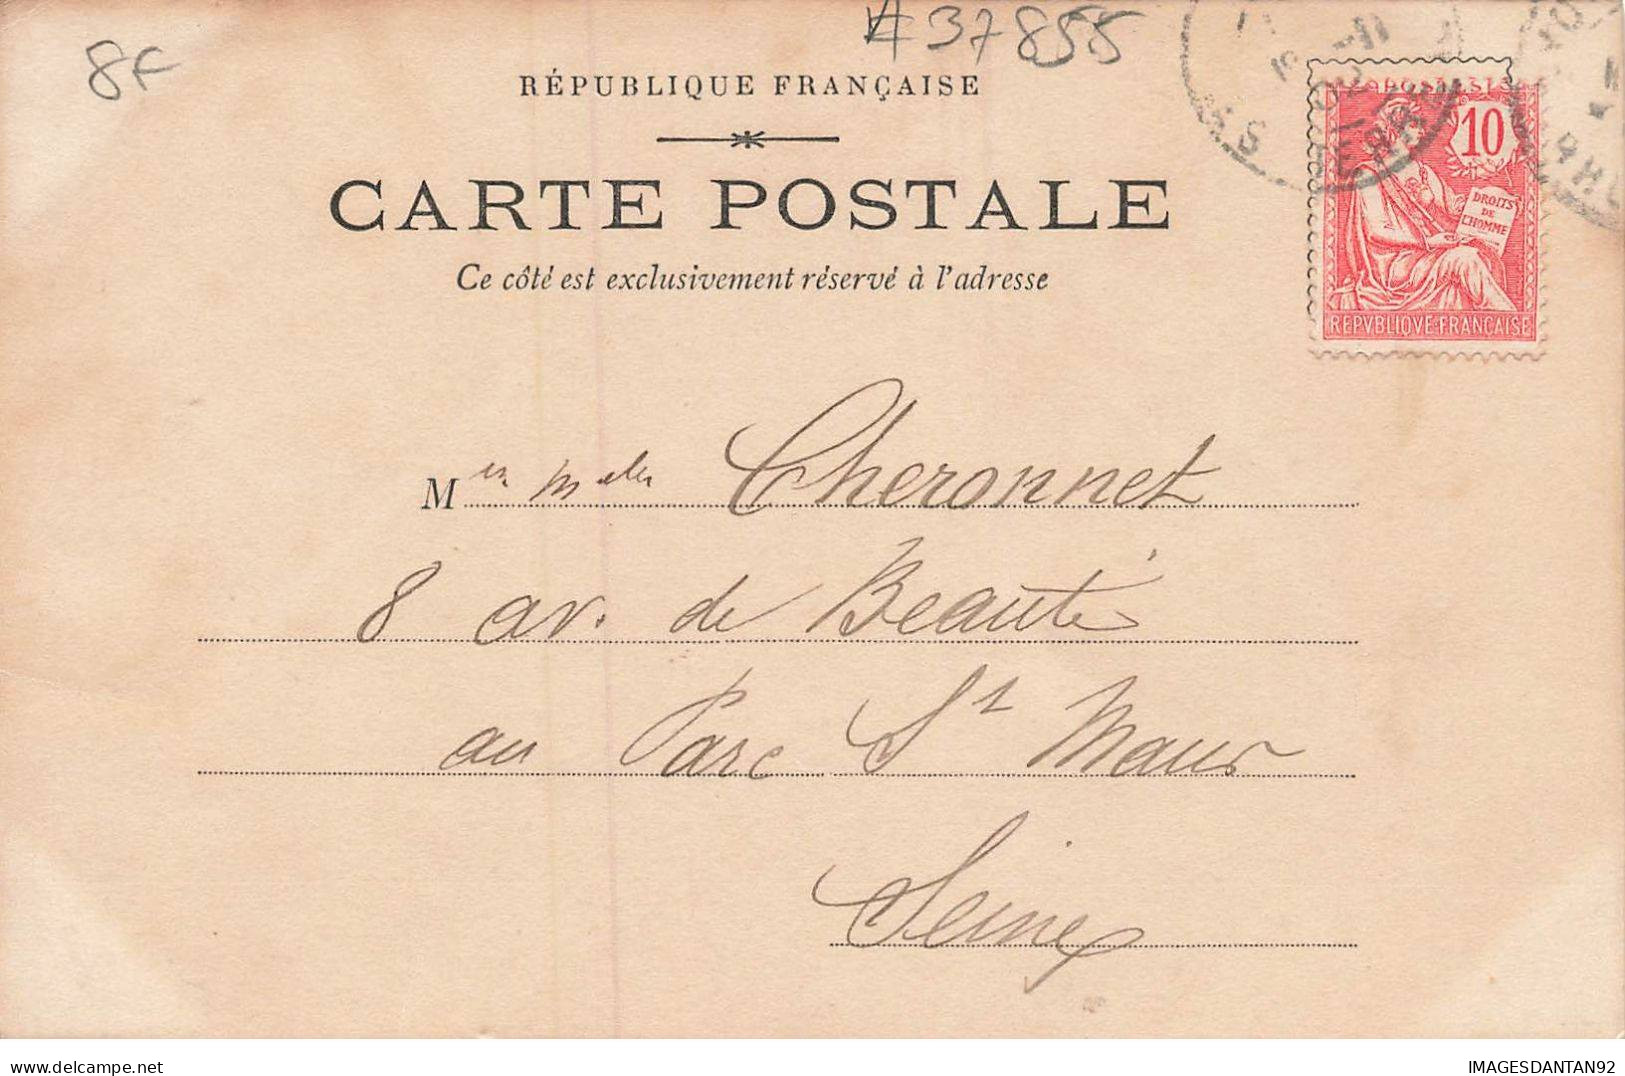 8f
#37855
RÉPUBLIQUE FRANÇAISE
CARTE POSTALE
Ce côté est exclusivement réservé à l'adresse
10
DROITS
DE
L'HOMME
REPVBLIQVE FRANÇAISE
M Cheronnet
8 av. de Beauté
au Parc St Maur
Seine
IMAGESDANTAN92